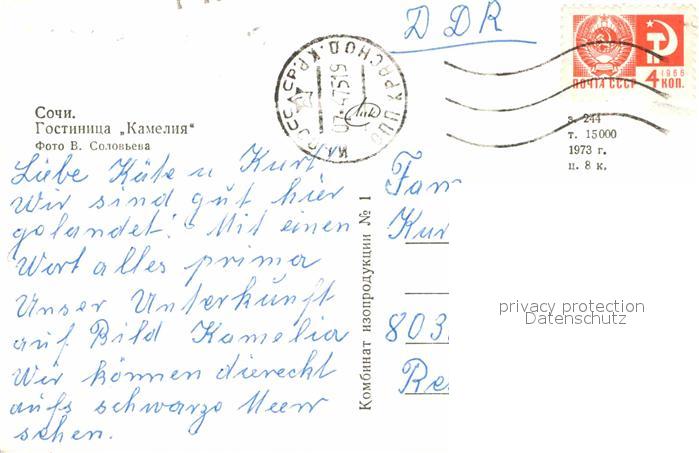 DDR
ПОЧТА СССР
1966
4 КОП.
Сочи.
Гостиница „Камелия"
Фото В. Соловьева
з. 244
т. 15000
1973 г.
ц. 8 к.
Liebe Käte u Kurt.
Wir sind gut hier
golandet. Mit einen
Wort alles prima
Unser Unterkunft
auf Bild Kamelia
Wir können diereckt
aufs schwarze Meer
sehen.
Комбинат изопродукции № 1
Fam
Kur
803
Re
privacy protection
Datenschutz